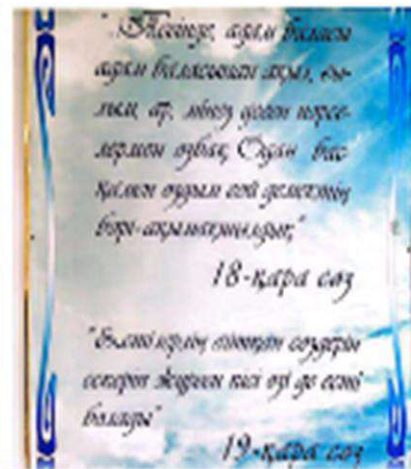 "Тегінде, адам баласы
адам баласынан ақыл, ғы-
лым, ар, мінез деген нәрсе-
лермен озбақ. Одан бас-
қамен оздым ғой демектің
бәрі-ақымақшылдық"
18-қара сөз
"Естілердің айтқан сөздерін
ескеріп жүрген кісі өзі де есті
болады"
19-қара сөз